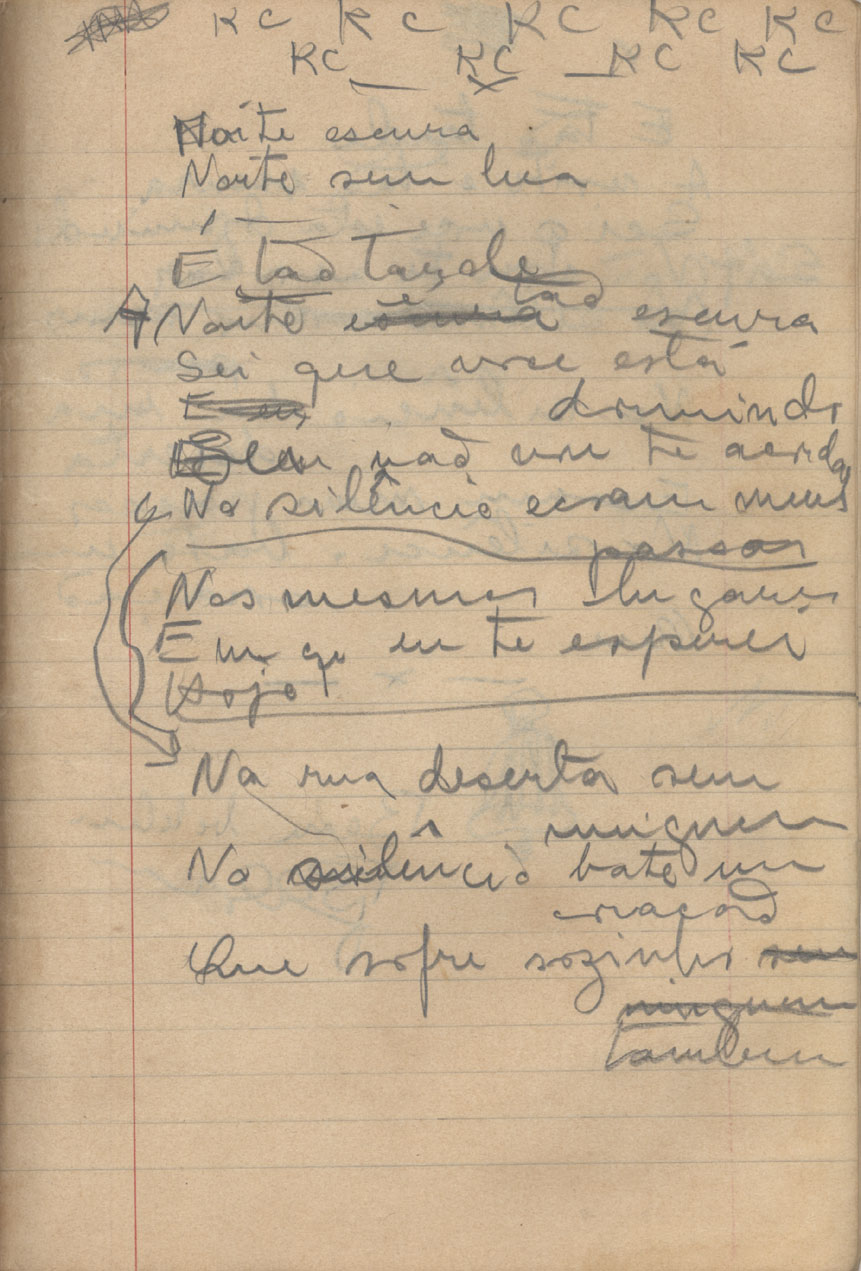 KC KC KC KC KC
KC KC KC KC
Noite escura
Noite sem lua
É tão tarde
A Noite é escura tão escura
Sei que você está
dormindo
não vou te acordar
No silêncio ecoam meus
passos
Nos mesmos lugares
Em q eu te esperei
Hoje
Na rua deserta sem
ninguem
No silêncio bate um
coração
Que sofre sozinho sem
ninguem
tambem